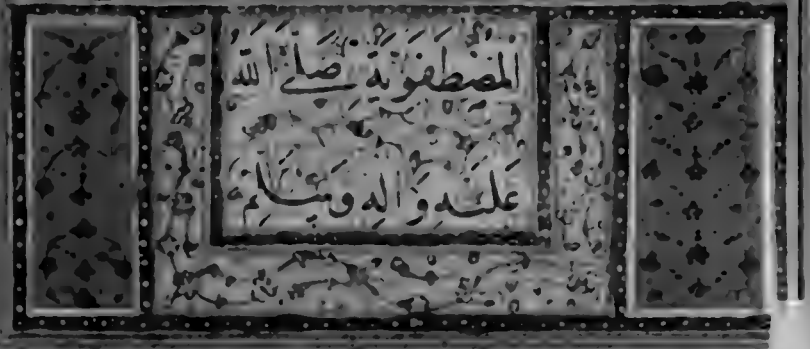 المصطفوية صلى الله
عليه وآله وسلم